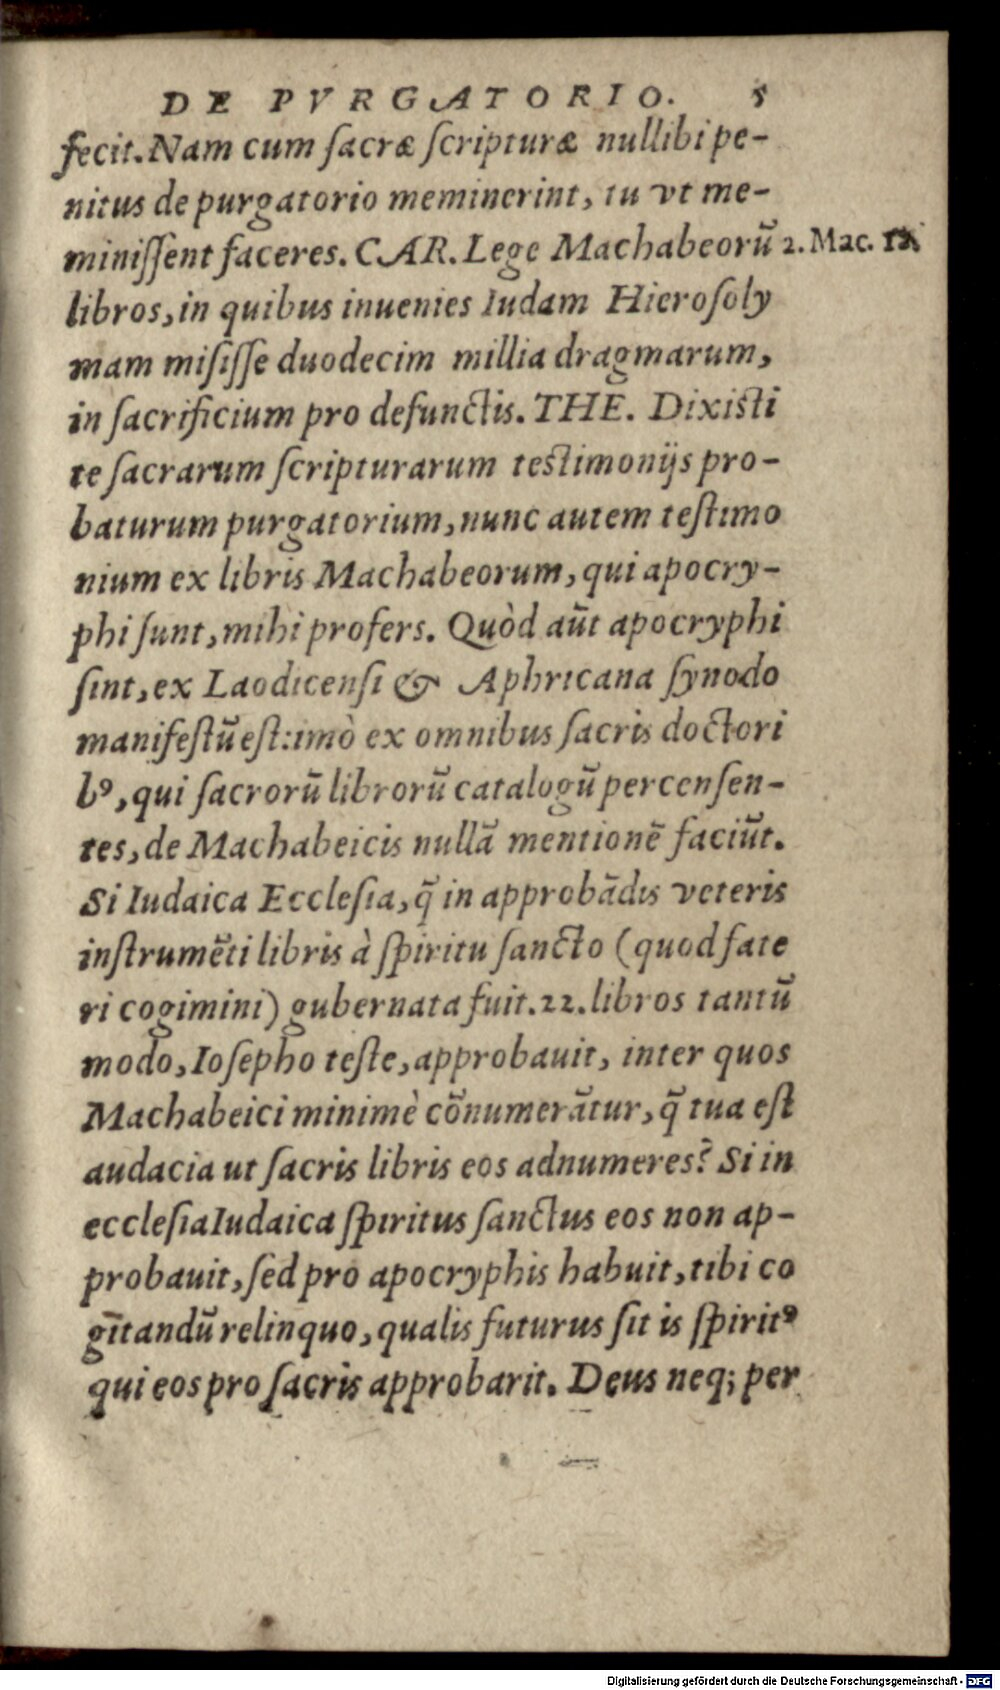 DE PVRGATORIO. 5
fecit. Nam cum sacræ scripturæ nullibi pe-
nitus de purgatorio meminerint, tu vt me-
minissent faceres. CAR. Lege Machabeorū 2. Mac. 12.
libros, in quibus inuenies Iudam Hierosoly
mam misisse duodecim millia dragmarum,
in sacrificium pro defunctis. THE. Dixisti
te sacrarum scripturarum testimonijs pro-
baturum purgatorium, nunc autem testimo
nium ex libris Machabeorum, qui apocry-
phi sunt, mihi profers. Quòd aūt apocryphi
sint, ex Laodicensi & Aphricana synodo
manifestū est: imò ex omnibus sacris doctori
bꝰ, qui sacrorū librorū catalogū percensen-
tes, de Machabeicis nullā mentionē faciūt.
Si Iudaica Ecclesia, q̄ in approbādis veteris
instrumēti libris à spiritu sancto (quod fate
ri cogimini) gubernata fuit. 22. libros tantū
modo, Iosepho teste, approbauit, inter quos
Machabeici minimè cōnumerātur, q̄ tua est
audacia ut sacris libris eos adnumeres? Si in
ecclesia Iudaica spiritus sanctus eos non ap-
probauit, sed pro apocryphis habuit, tibi co
gītandū relinquo, qualis futurus sit is spiritꝰ
qui eos pro sacris approbarit. Deus neq; per
Digitalisierung gefördert durch die Deutsche Forschungsgemeinschaft - DFG